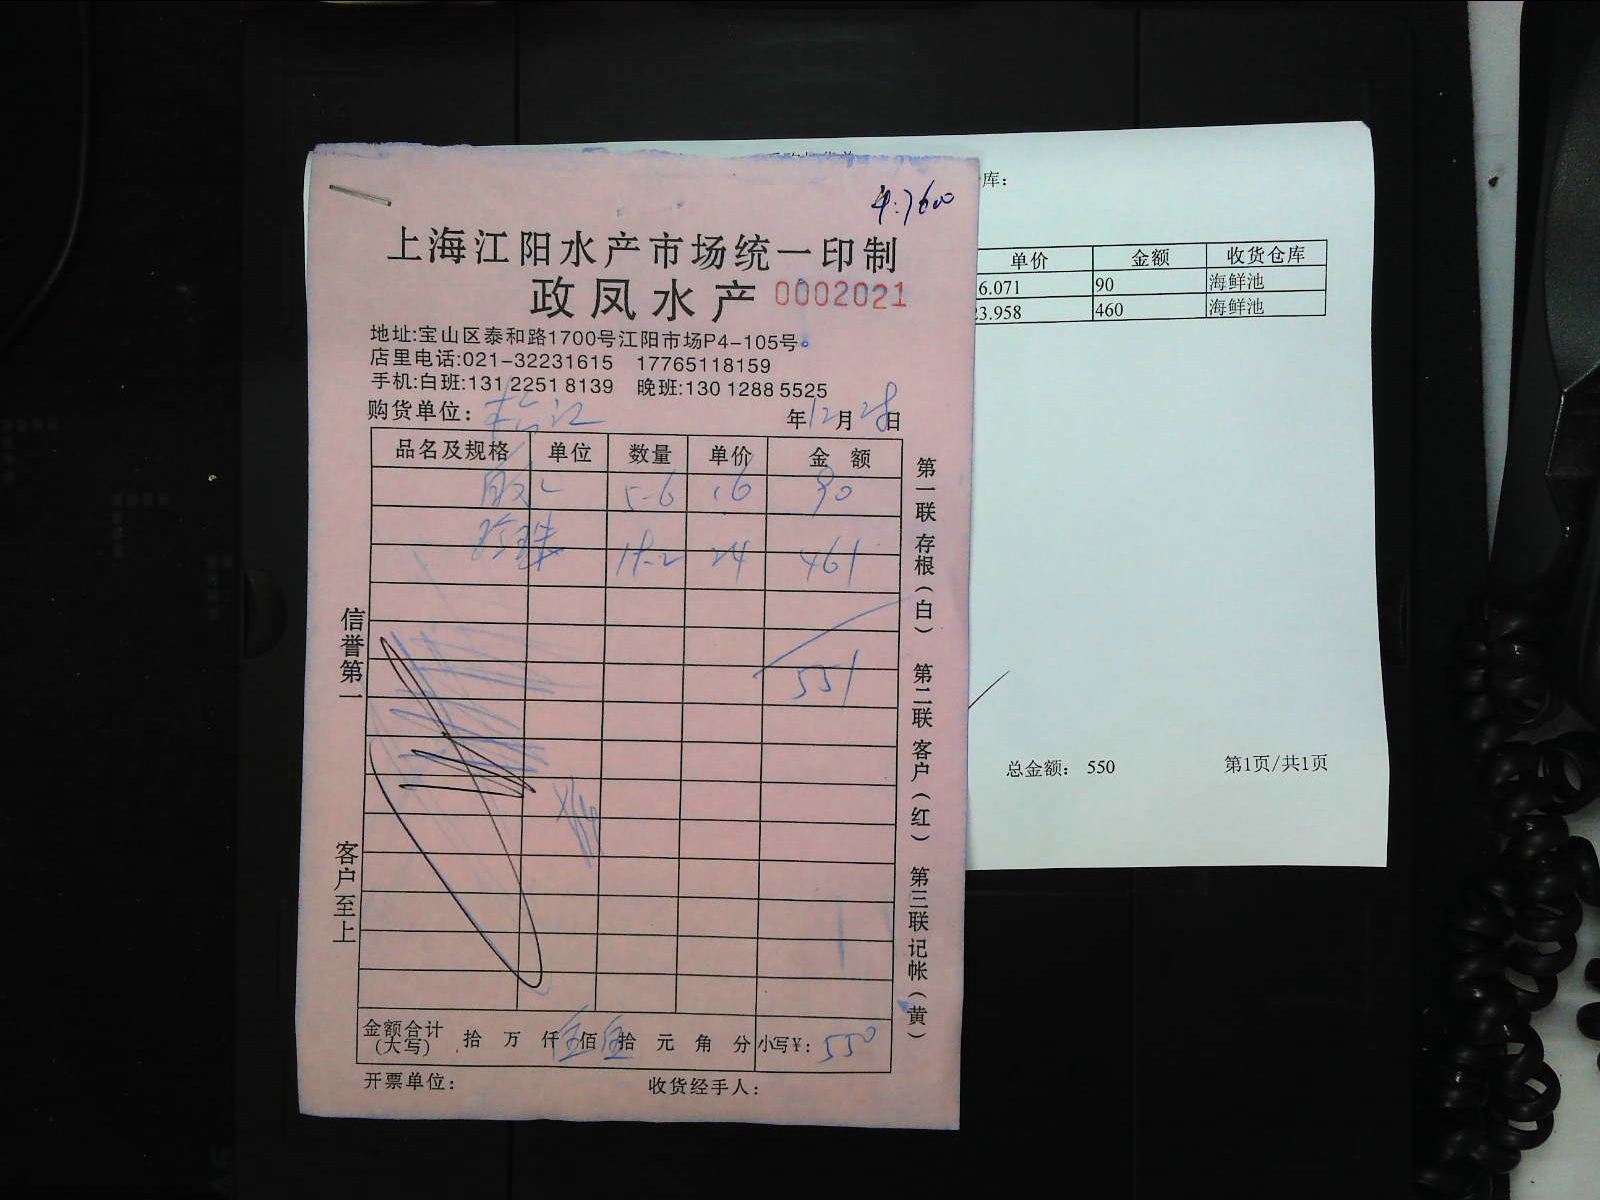 4:7600
上海江阳水产市场统一印制
政凤水产 0002021
地址:宝山区泰和路1700号江阳市场P4-105号
店里电话:021-32231615 17765118159
手机:白班:131 2251 8139 晚班:130 1288 5525
购货单位: 年12月28日
品名及规格 单位 数量 单价 金额
5-6 16 90
珍珠 19-2 24 461
551
金额合计(大写) 拾 万 仟伍佰伍拾 元 角 分 小写¥: 550
开票单位: 收货经手人:
信誉第一
客户至上
第一联存根(白)
第二联客户(红)
第三联记帐(黄)
库:
单价 金额 收货仓库
6.071 90 海鲜池
3.958 460 海鲜池
总金额: 550 第1页/共1页